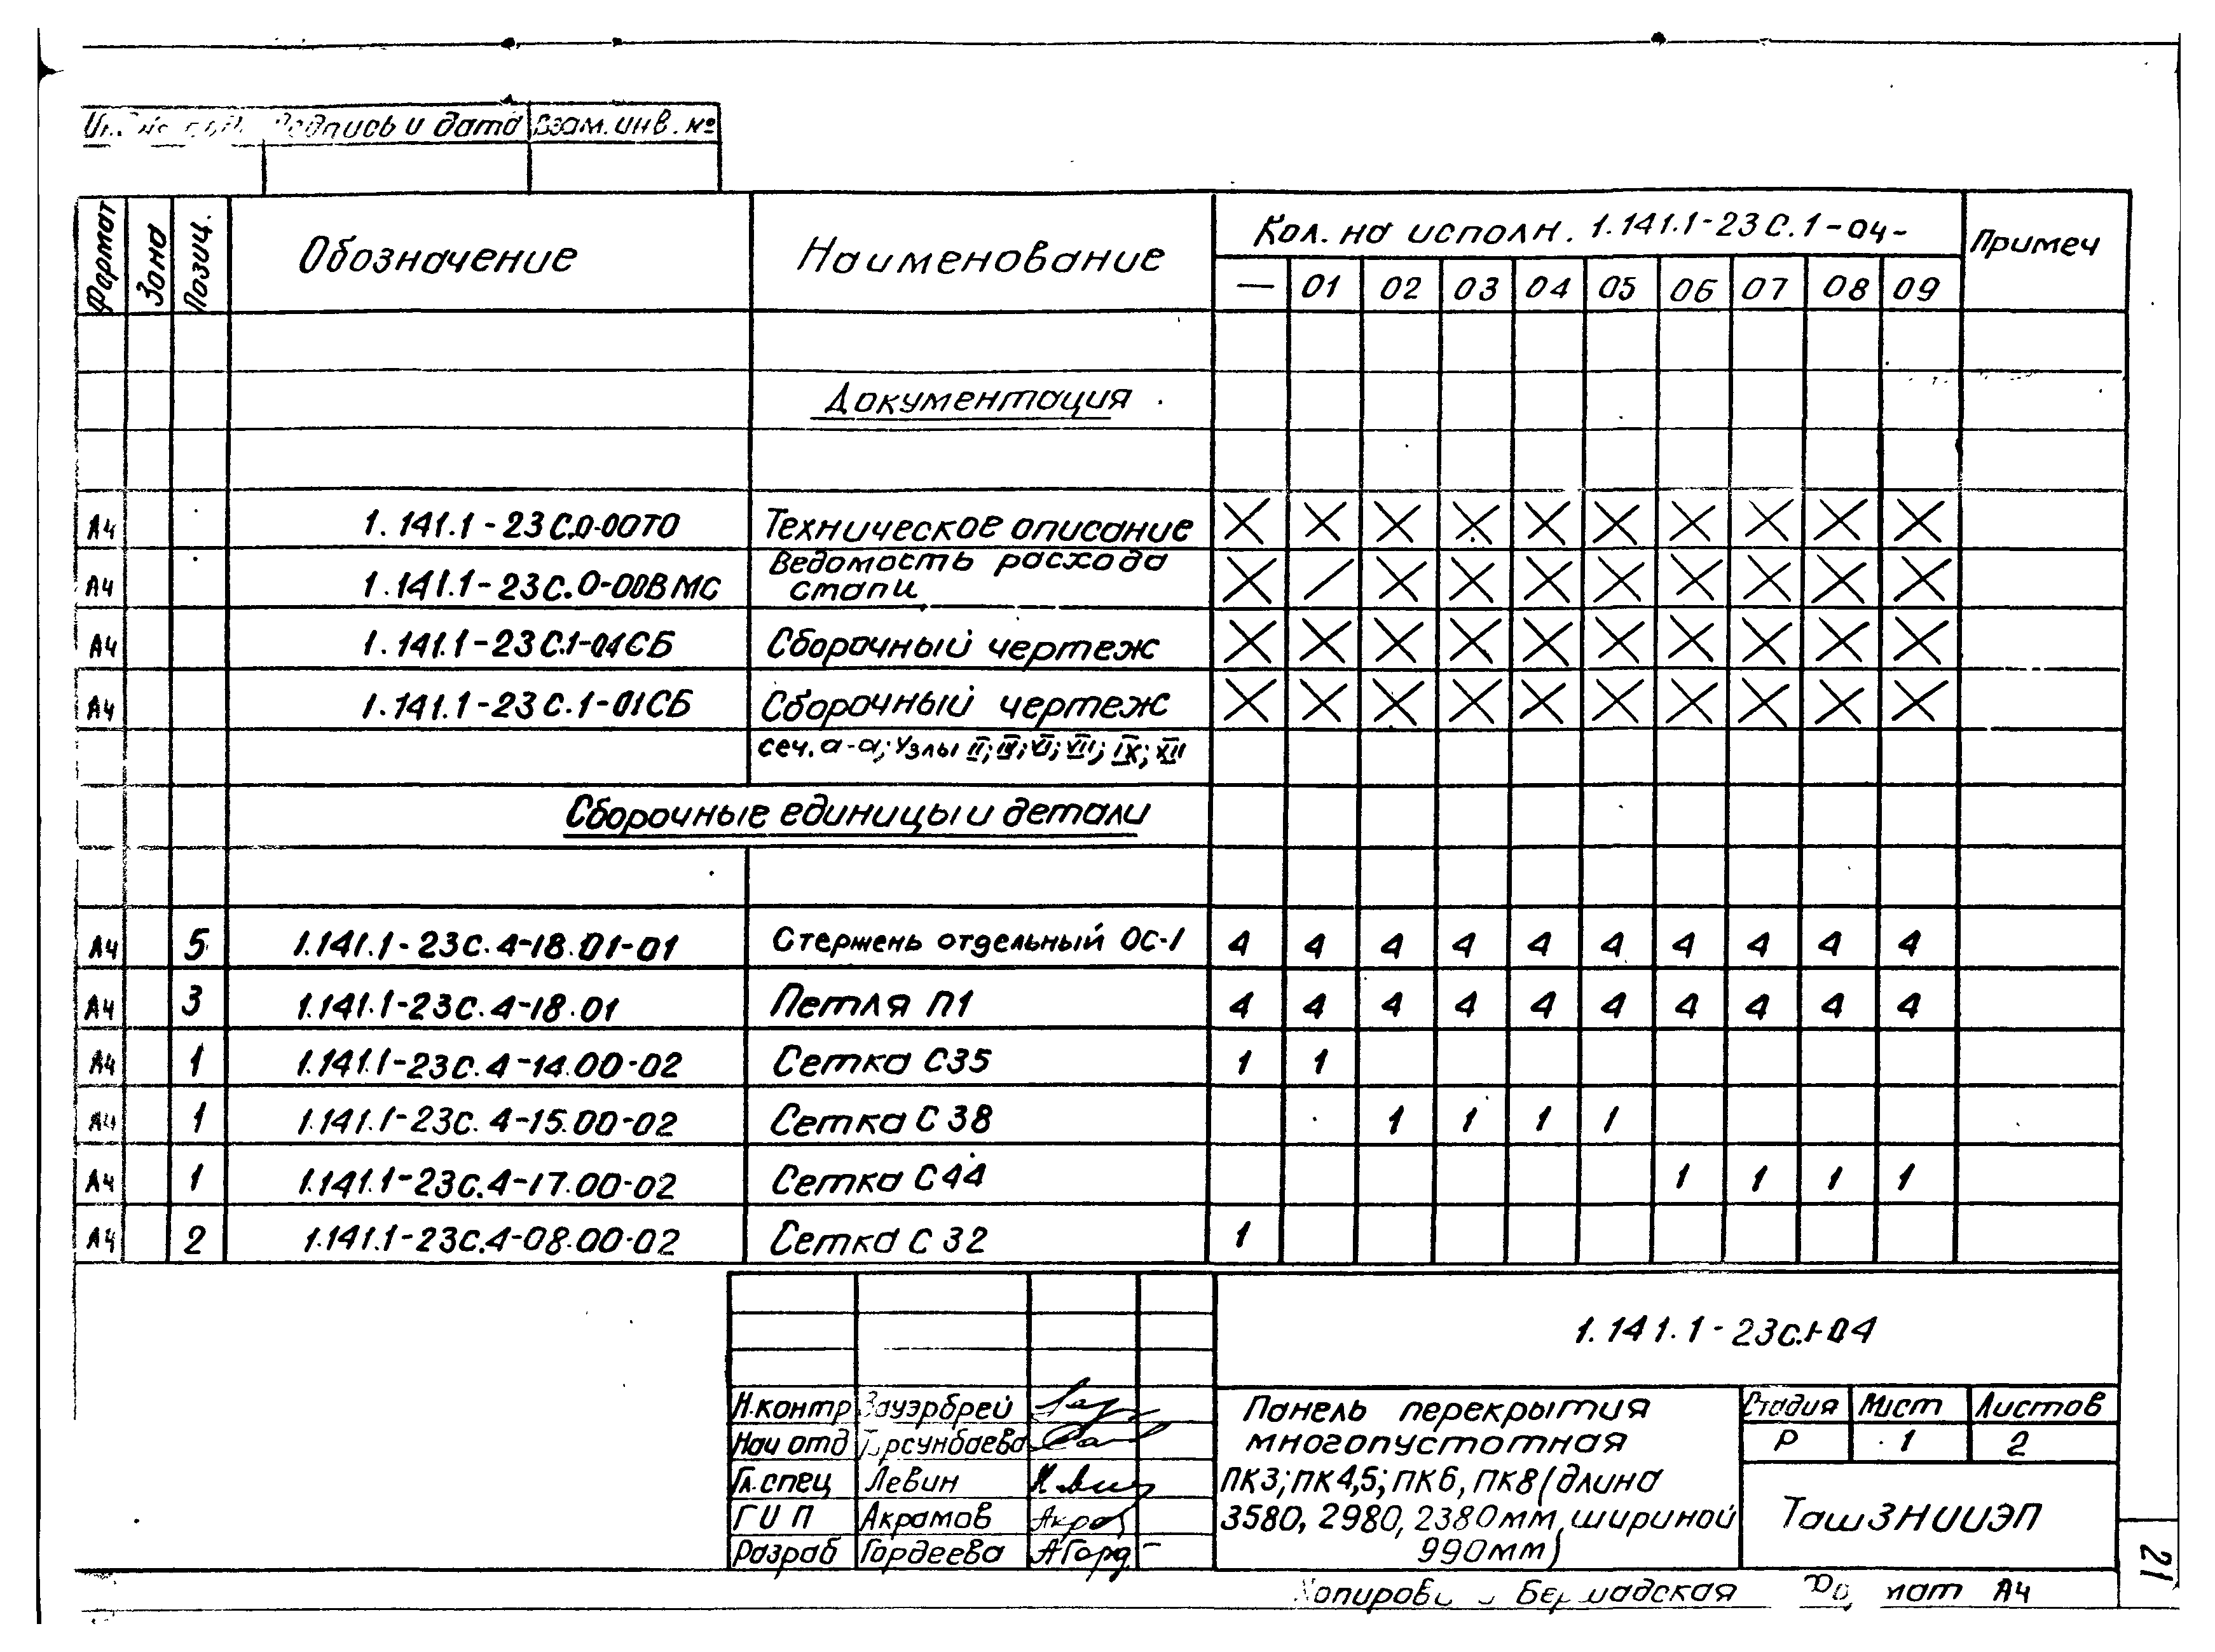 подпись и дата Взам. инв. №
Формат Зона Позиц. Обозначение Наименование Кол. на исполн. 1.141.1-23С.1-04- Примеч
— 01 02 03 04 05 06 07 08 09
Документация
А4 1.141.1-23С.0-00ТО Техническое описание X X X X X X X X X X
Ведомость расхода
А4 1.141.1-23С.0-00ВМС стали X / X X X X X X X X
А4 1.141.1-23С.1-04СБ Сборочный чертеж X X X X X X X X X X
А4 1.141.1-23С.1-01СБ Сборочный чертеж X X X X X X X X X X
сеч. а-а; Узлы II; IV; VI; VII; IX; XII
Сборочные единицы и детали
А4 5 1.141.1-23С.4-18.01-01 Стержень отдельный ОС-1 4 4 4 4 4 4 4 4 4 4
А4 3 1.141.1-23С.4-18.01 Петля П1 4 4 4 4 4 4 4 4 4 4
А4 1 1.141.1-23С.4-14.00-02 Сетка С35 1 1
А4 1 1.141.1-23С.4-15.00-02 Сетка С38 1 1 1 1
А4 1 1.141.1-23С.4-17.00-02 Сетка С44 1 1 1 1
А4 2 1.141.1-23С.4-08.00-02 Сетка С32 1
1.141.1-23С.1-04
Н.контр Зауэрбрей
Нач отд Турсунбаева
Гл.спец Левин
ГИП Акрамов
Разраб Гордеева
Панель перекрытия
многопустотная
ПК3; ПК4,5; ПК6, ПК8 (длина
3580, 2980, 2380мм, шириной
990мм)
Стадия Лист Листов
Р 1 2
ТашЗНИИЭП
21
Формат А4